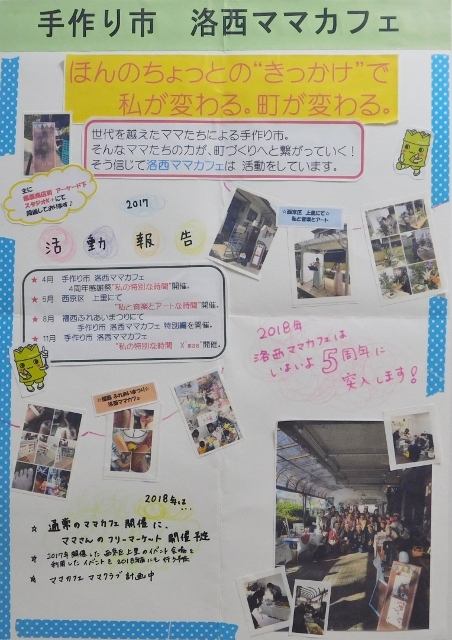 手作り市　洛西ママカフェ
ほんのちょっとの“きっかけ”で
私が変わる。町が変わる。
世代を越えたママたちによる手作り市。
そんなママたちの力が、町づくりへと繋がっていく！
そう信じて洛西ママカフェは 活動をしています。
主に
アーケード下
にて
開催しております♪
2017
活動報告
★ 4月　手作り市 洛西ママカフェ
4周年感謝祭“私の特別な時間”開催。
★ 6月　西京区 上里にて
“私と音楽とアートな時間”開催。
★ 8月　福西ふれあいまつりにて
手作り市 洛西ママカフェ 特別編を開催。
★ 11月　手作り市 洛西ママカフェ
“私の特別な時間　X'mas”開催。
☆西京区 上里にて☆
私と音楽とアート
2018年
洛西ママカフェは
いよいよ5周年に
突入します！
☆福西 ふれあいまつり☆
洛西ママカフェ
2018年は…
☆ 通常のママカフェ開催に、
ママさんのフリーマーケット 開催予定
☆ 2017年開催した西京区上里のイベント会場を
利用したイベントを2018年春にも行う予定
☆ ママカフェ ママクラブ 計画中